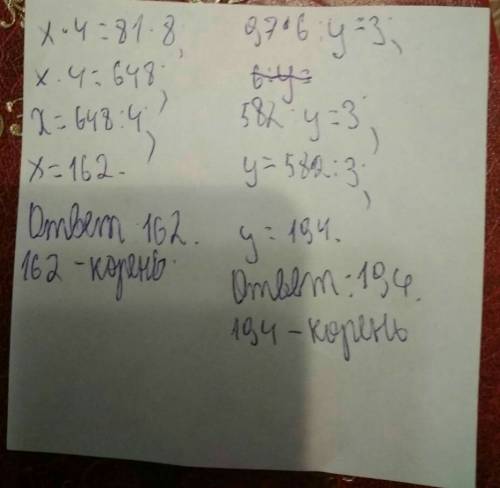 x·4=81·8;
x·4=648;
x=648:4;
x=162.
Ответ 162.
162 - корень.
97·6:y=3;
6:y=
582:y=3;
y=582:3;
y=194.
Ответ: 194.
194 - корень